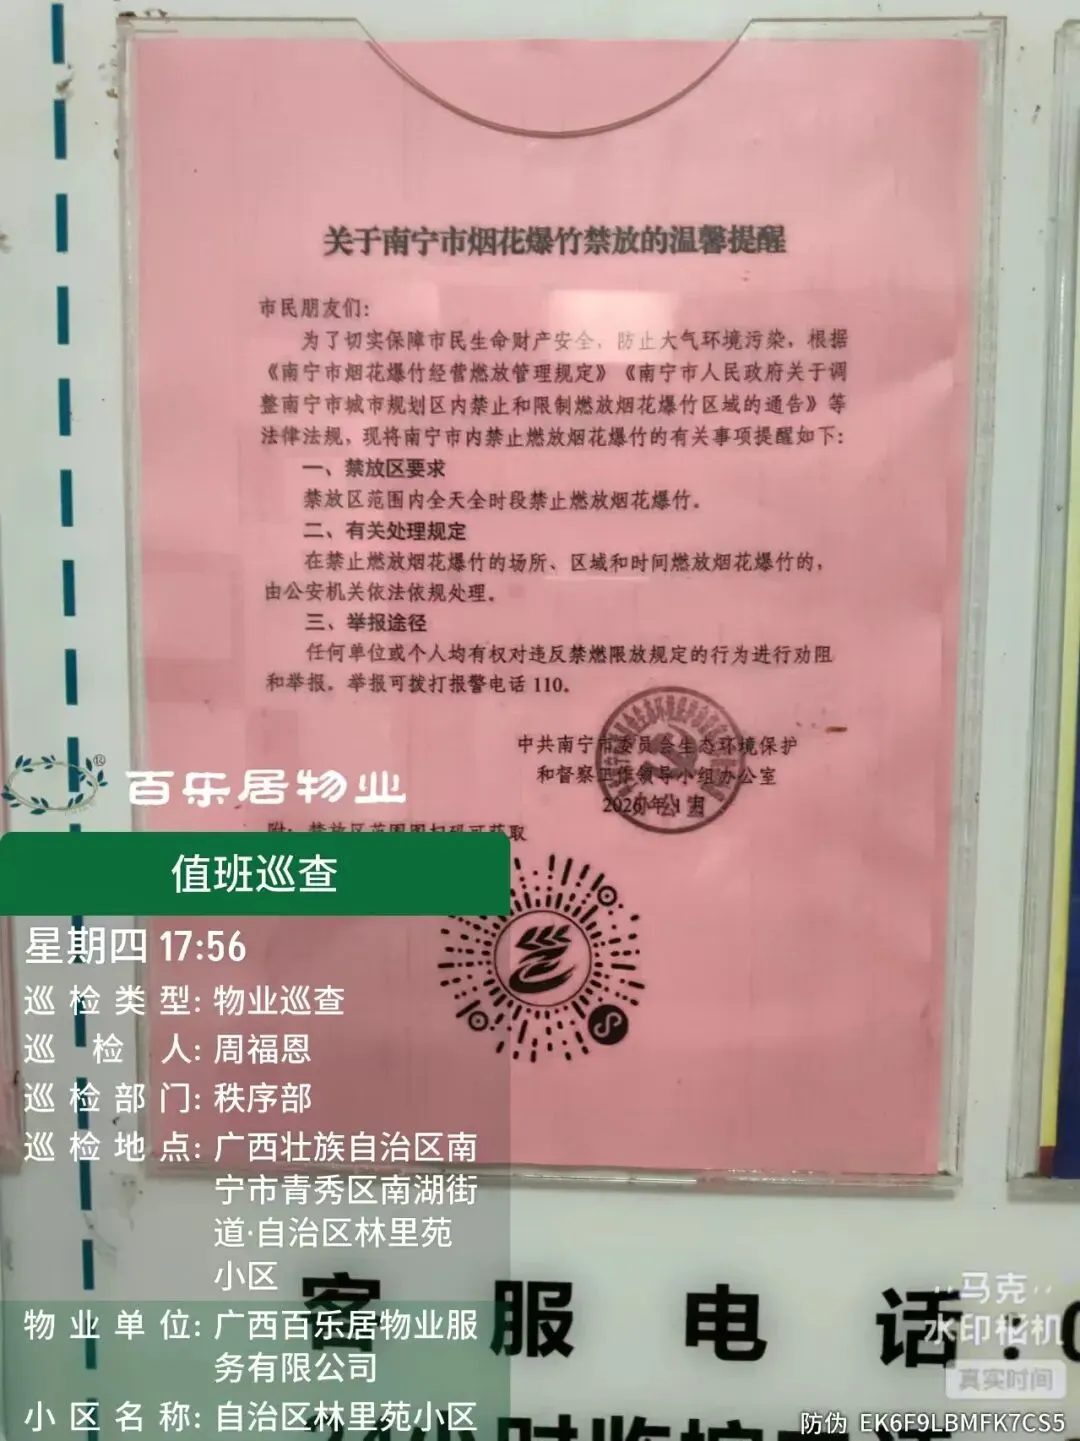 关于南宁市烟花爆竹禁放的温馨提醒
市民朋友们：
为了切实保障市民生命财产安全，防止大气环境污染，根据
《南宁市烟花爆竹经营燃放管理规定》《南宁市人民政府关于调
整南宁市城市规划区内禁止和限制燃放烟花爆竹区域的通告》等
法律法规，现将南宁市内禁止燃放烟花爆竹的有关事项提醒如下：
一、禁放区要求
禁放区范围内全天全时段禁止燃放烟花爆竹。
二、有关处理规定
在禁止燃放烟花爆竹的场所、区域和时间燃放烟花爆竹的，
由公安机关依法依规处理。
三、举报途径
任何单位或个人均有权对违反禁燃限放规定的行为进行劝阻
和举报。举报可拨打报警电话 110。
中共南宁市委员会生态环境保护
和督察工作领导小组办公室
2026年1月
附：禁放区范围图扫码可获取
百乐居物业
值班巡查
星期四 17:56
巡检类型：物业巡查
巡检人：周福恩
巡检部门：秩序部
巡检地点：广西壮族自治区南
宁市青秀区南湖街
道·自治区林里苑
小区
物业单位：广西百乐居物业服
务有限公司
小区名称：自治区林里苑小区
客服电话：0
马克
水印相机
真实时间
防伪 EK6F9LBMFK7CS5